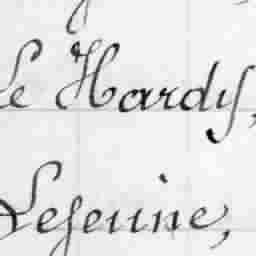 Le Hardy,
Lejeune,